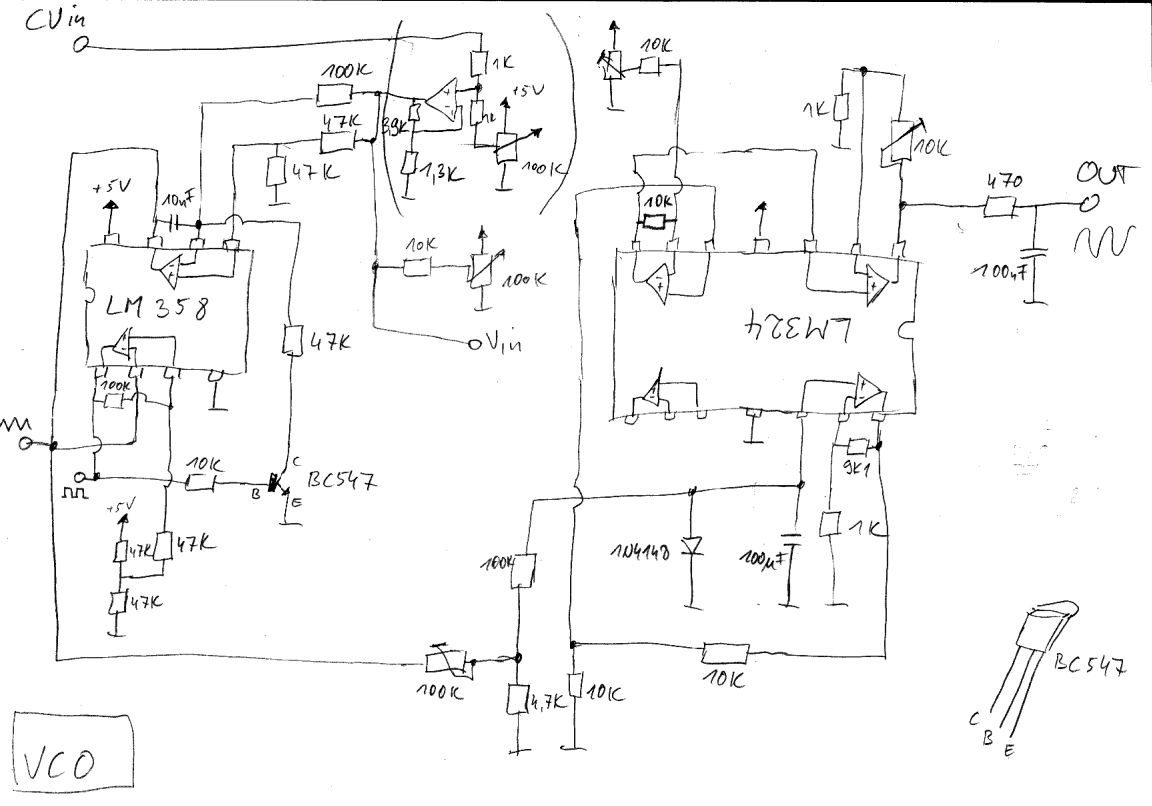 CVin
1K
+5V
100K
100K
47K
3,9K
1,3K
47K
+5V
10nF
LM 358
100K
10K
100K
Vin
47K
10K
B
C
E
BC547
+5V
47K
47K
47K
10K
10K
1K
10K
470
OUT
100nF
LM324
9K1
1K
100K
1N4148
100µF
100K
4,7K
10K
10K
BC547
C
B
E
VCO